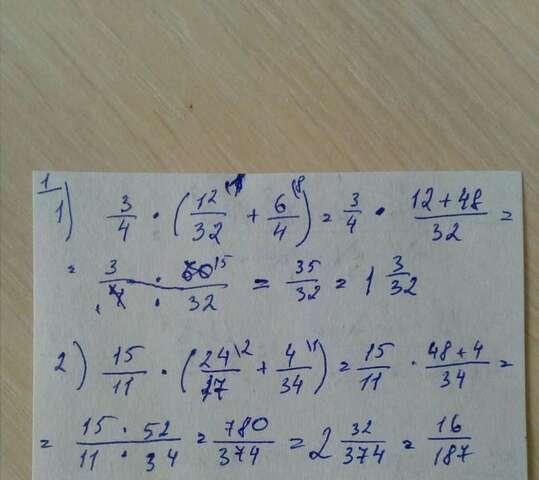 1
1) 3/4 · (12/32 \1 + 6/4 \8) = 3/4 · (12+48)/32 =
= (3 · 60 15)/(4 1 · 32) = 35/32 = 1 3/32
2) 15/11 · (24/17 \2 + 4/34 \1) = 15/11 · (48+4)/34 =
= (15 · 52)/(11 · 34) = 780/374 = 2 32/374 = 16/187